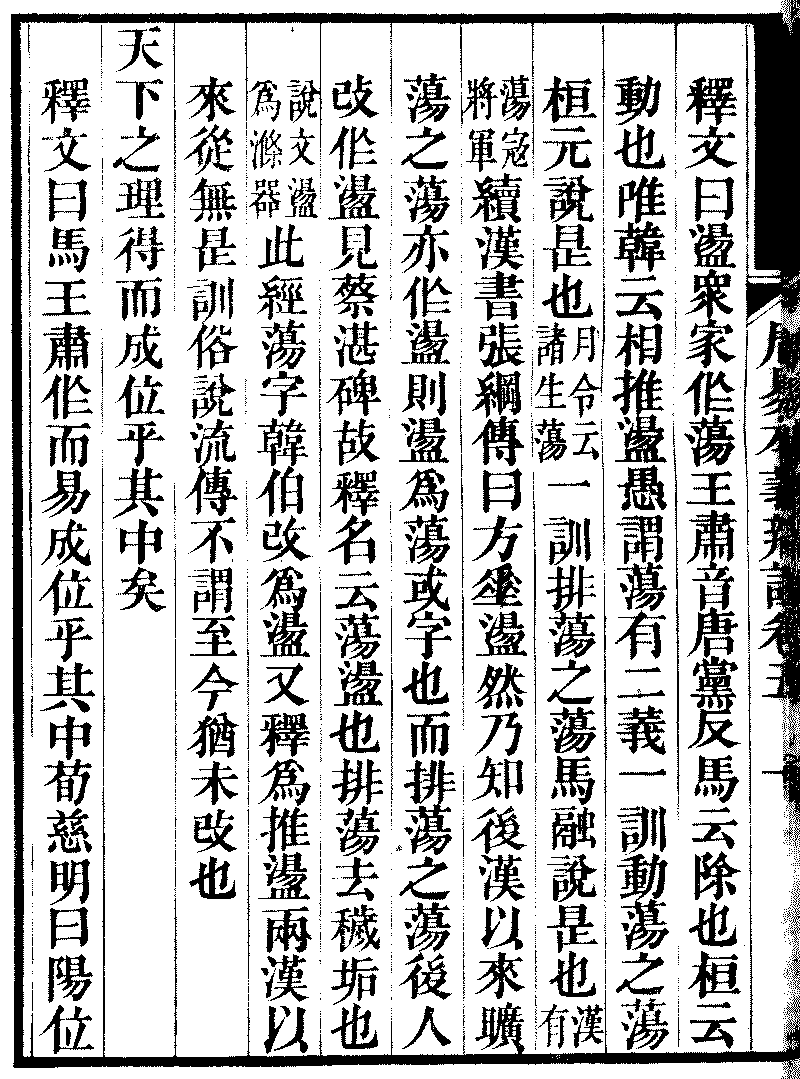 周易本義辨證卷五
釋文曰盪衆家作蕩王肅音唐黨反馬云除也桓云
動也唯韓云相推盪愚謂蕩有二義一訓動蕩之蕩
桓元說是也月令云諸生蕩一訓排蕩之蕩馬融說是也漢有
蕩寇將軍續漢書張綱傳曰方垂盪然乃知後漢以來曠
蕩之蕩亦作盪則盪爲蕩或字也而排蕩之蕩後人
改作盪見蔡湛碑故釋名云蕩盪也排蕩去穢垢也
說文盪爲滌器此經蕩字韓伯改爲盪又釋爲推盪兩漢以
來從無是訓俗說流傳不謂至今猶未改也
天下之理得而成位乎其中矣
釋文曰馬王肅作而易成位乎其中荀慈明曰陽位